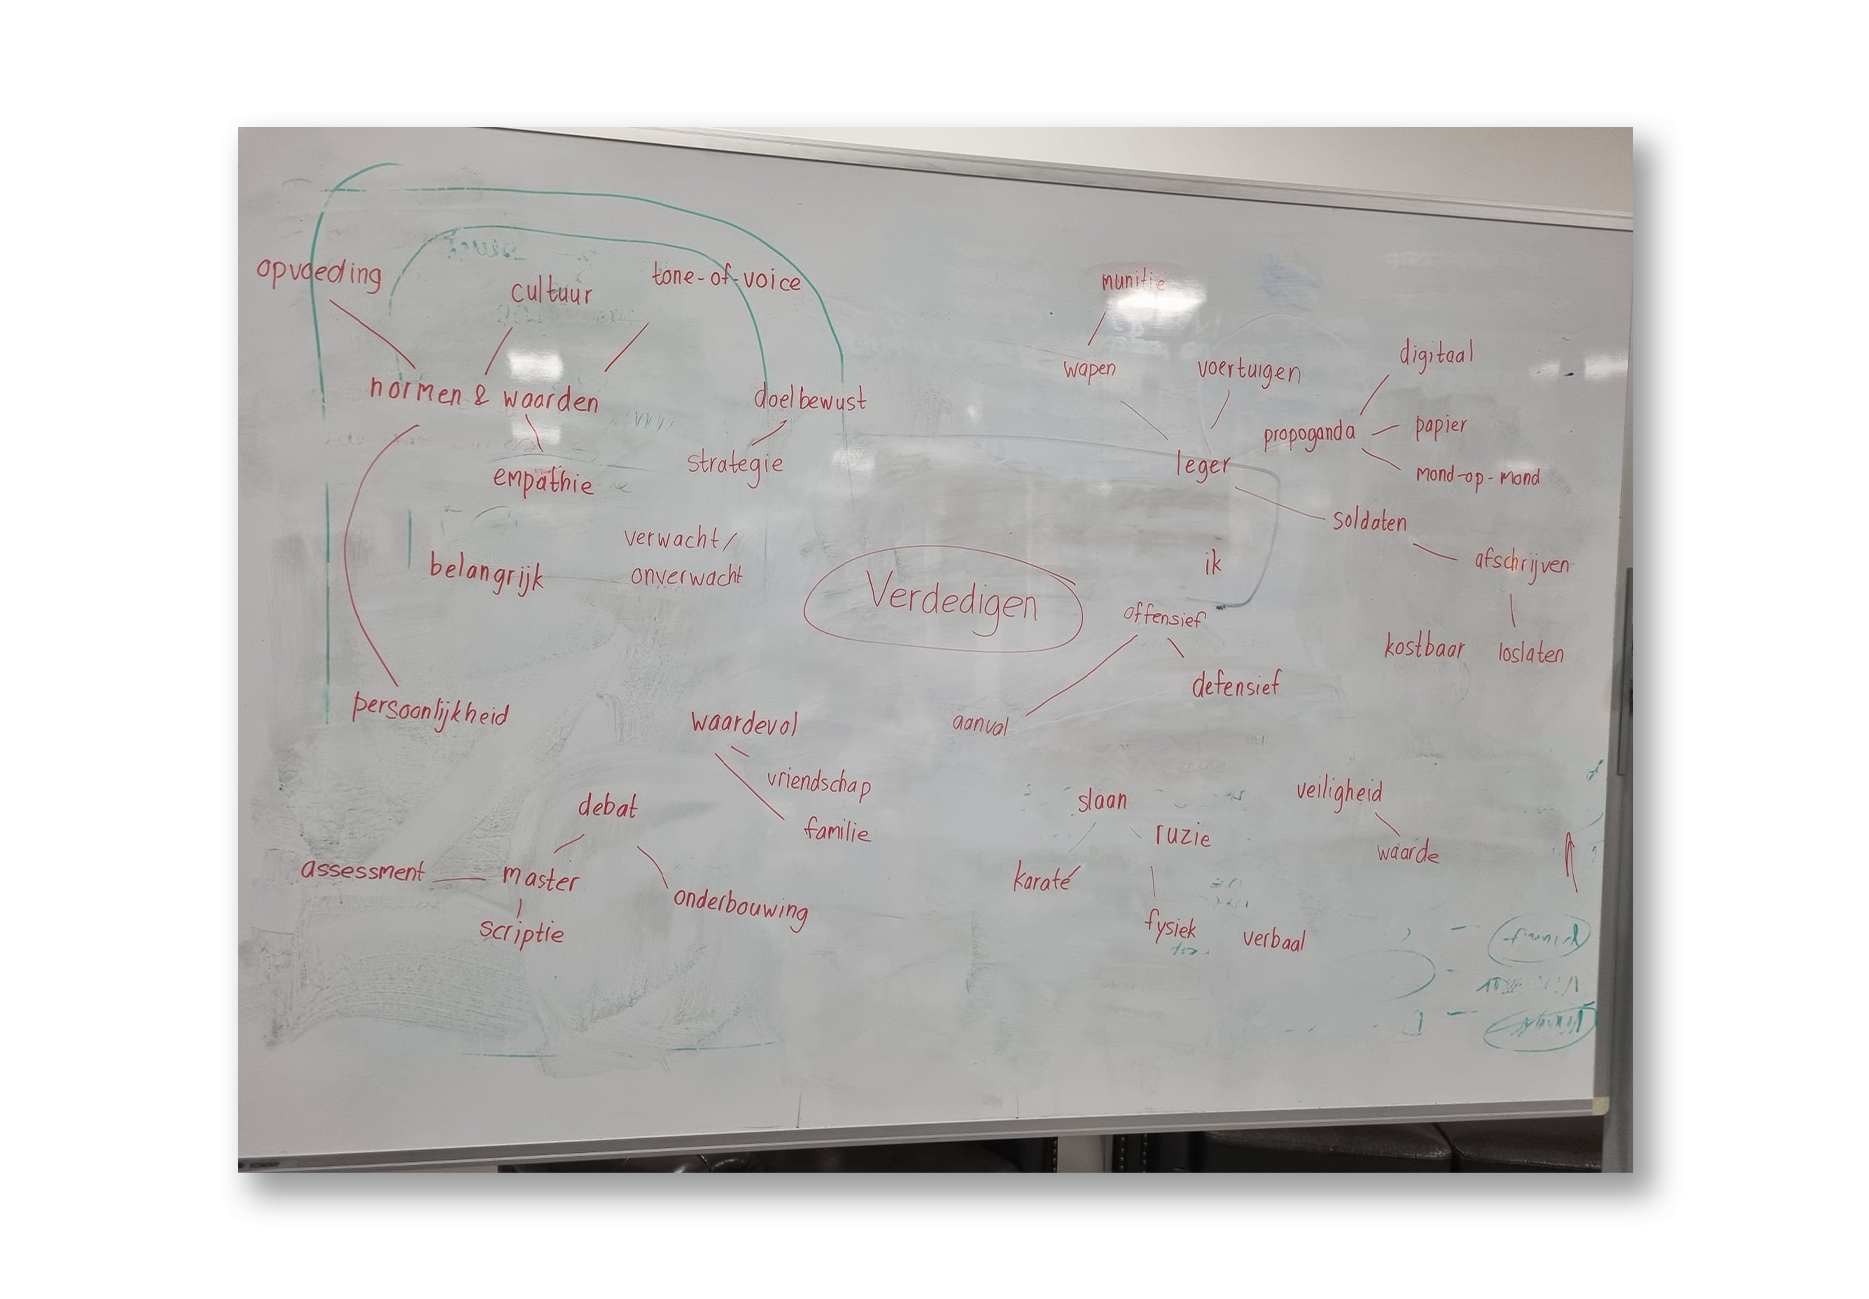 opvoeding
cultuur
tone-of-voice
normen & waarden
empathie
doelbewust
strategie
belangrijk
verwacht/
onverwacht
persoonlijkheid
Verdedigen
munitie
wapen
voertuigen
leger
propoganda
digitaal
papier
mond-op-mond
soldaten
afschrijven
kostbaar
loslaten
ik
offensief
defensief
aanval
waardevol
vriendschap
familie
debat
assessment
master
scriptie
onderbouwing
slaan
ruzie
karaté
fysiek
verbaal
veiligheid
waarde